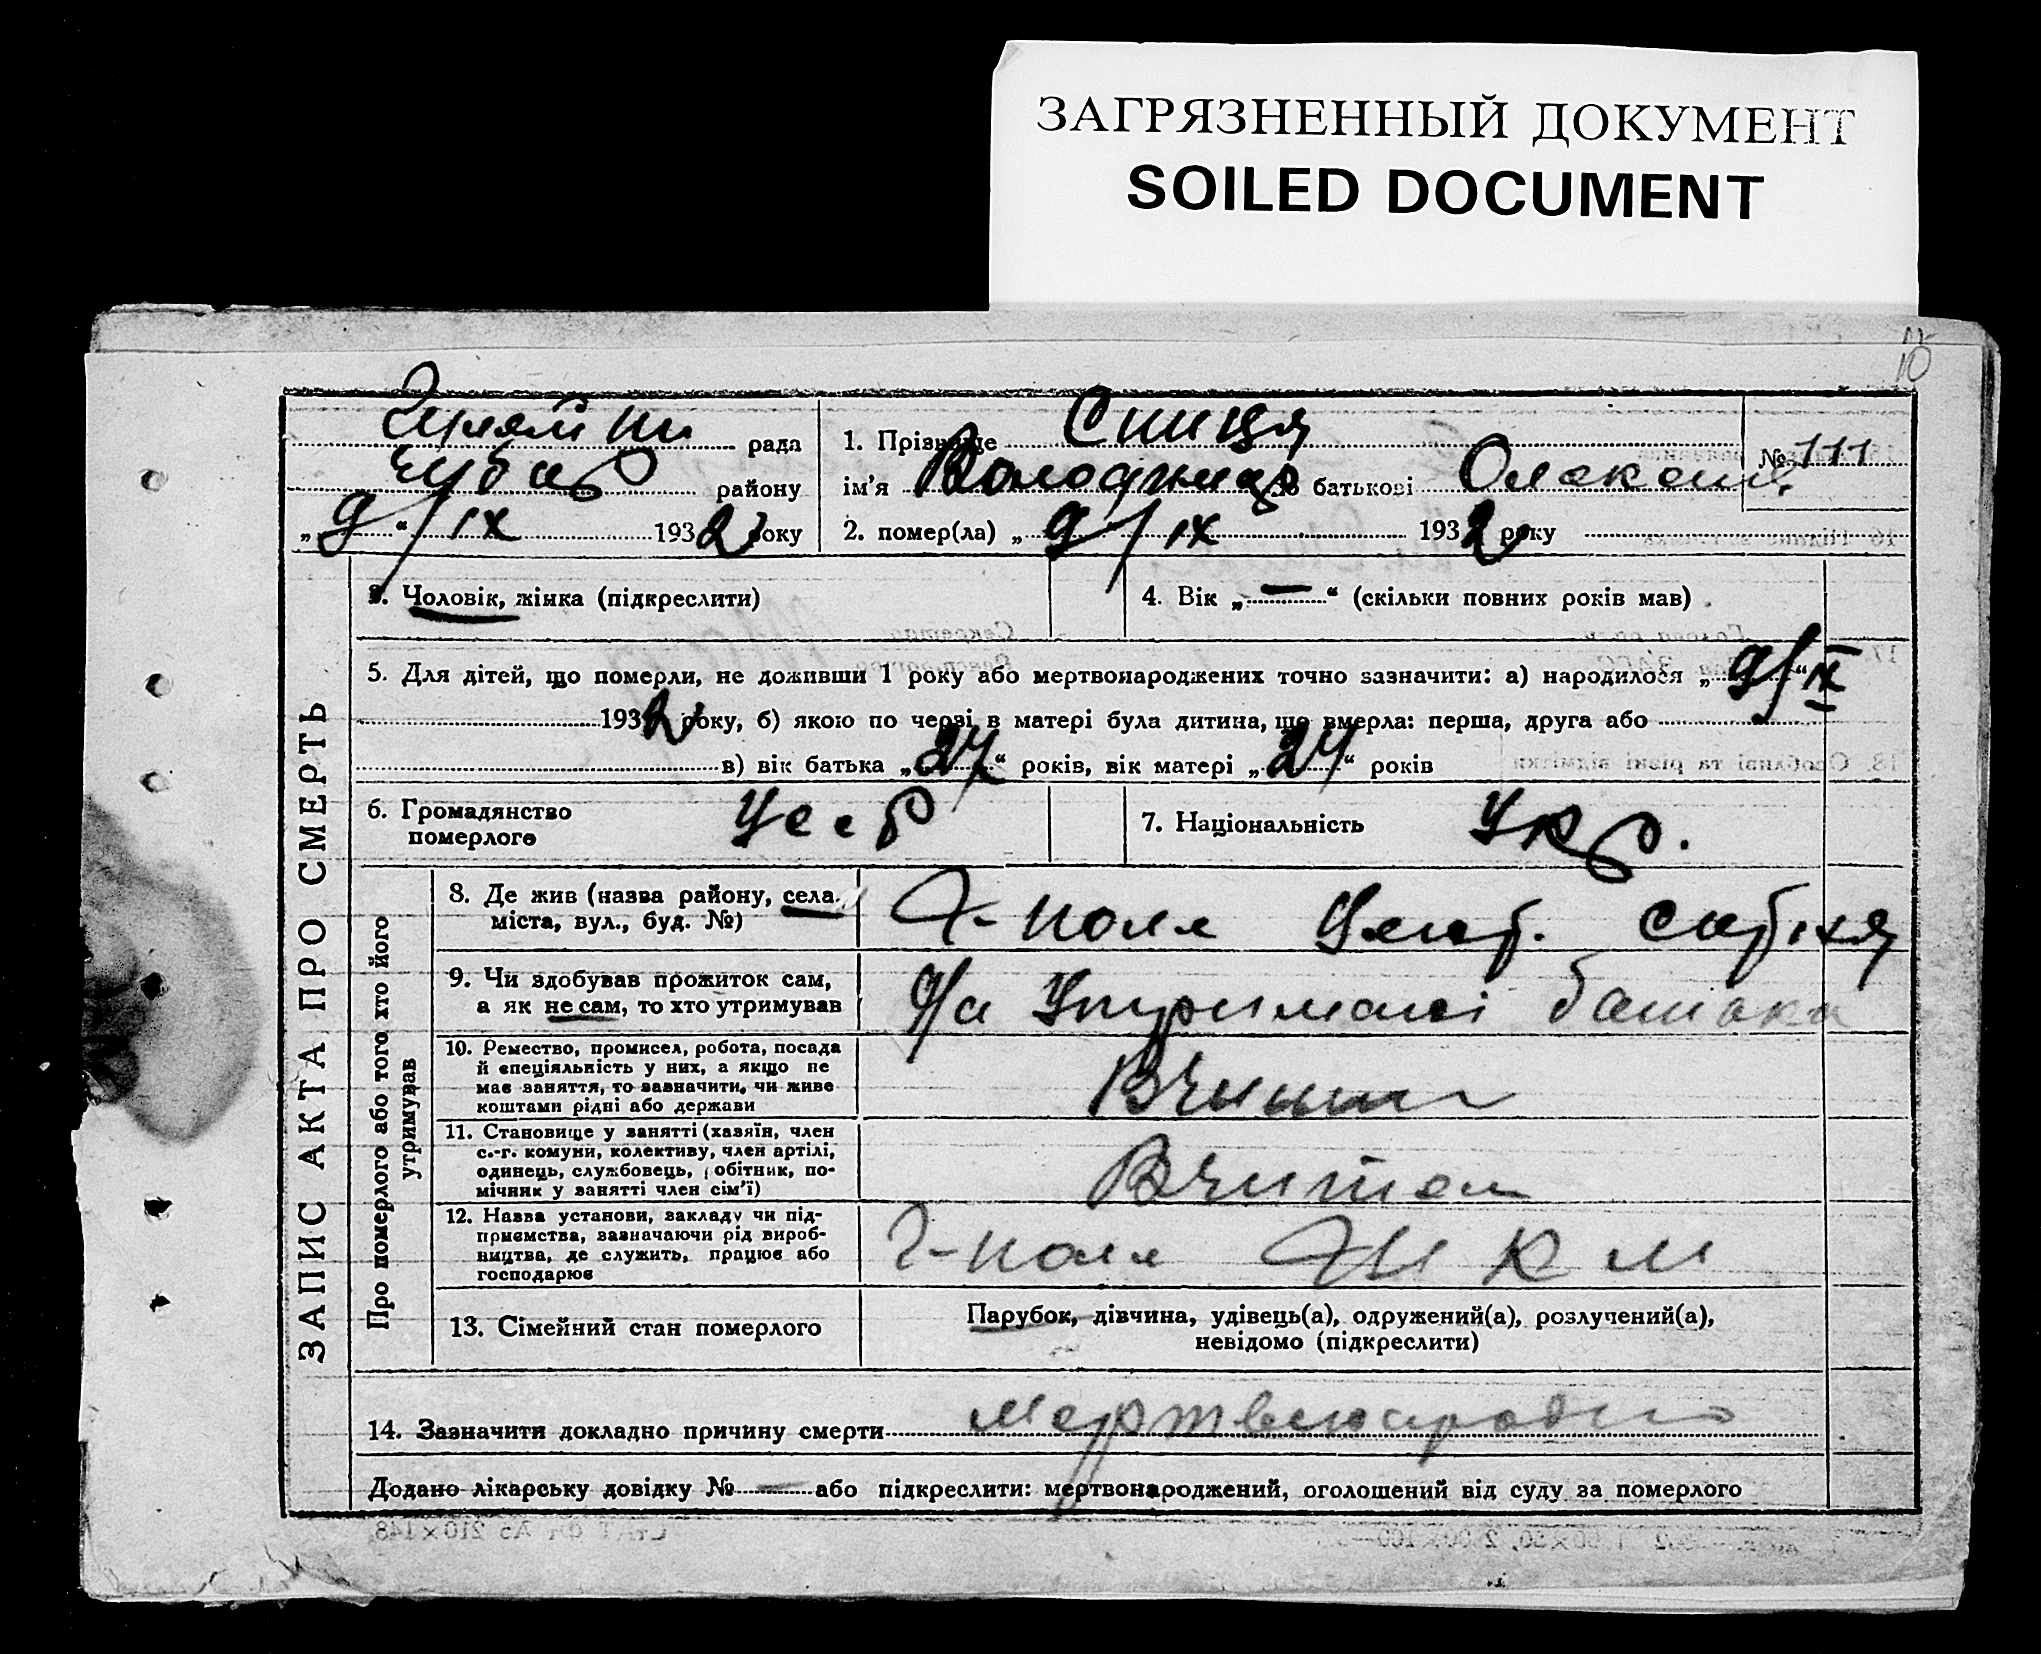 ЗАГРЯЗНЕННЫЙ ДОКУМЕНТ
SOILED DOCUMENT
10
рада
району
„9“/IX 1932 року
1. Прізвище Спиця
№ 111
ім'я Володимир по батькові Олексан.
2. помер(ла) „9/IX 1932 року
3. Чоловік, жінка (підкреслити)
4. Вік „—“ (скільки повних років мав)
5. Для дітей, що померли, не доживши 1 року або мертвонароджених точно зазначити: а) народилося „9/“IX
1932 року, б) якою по черзі в матері була дитина, що вмерла: перша, друга або
в) вік батька „27“ років, вік матері „24“ років
6. Громадянство
померлого
Усср
7. Національність Укр.
ЗАПИС АКТА ПРО СМЕРТЬ
Про померлого або того хто його
утримував
8. Де жив (назва району, села,
міста, вул., буд. №)
Г-поле
9. Чи здобував прожиток сам,
а як не сам, то хто утримував
На Утриманні батька
10. Ремество, промисел, робота, посада
й спеціяльність у них, а якщо не
має заняття, то зазначити, чи живе
коштами рідні або держави
11. Становище у занятті (хазяїн, член
с.-г. комуни, колективу, член артілі,
одинець, службовець, робітник, по-
мічник у занятті член сім'ї)
Вчитель
12. Назва установи, закладу чи під-
приємства, зазначаючи рід вироб-
ництва, де служить, працює або
господарює
Г-поле ШКМ
13. Сімейний стан померлого
Парубок, дівчина, удівець(а), одружений(а), розлучений(а),
невідомо (підкреслити)
14. Зазначити докладно причину смерти
Додано лікарську довідку № — або підкреслити: мертвонароджений, оголошений від суду за померлого